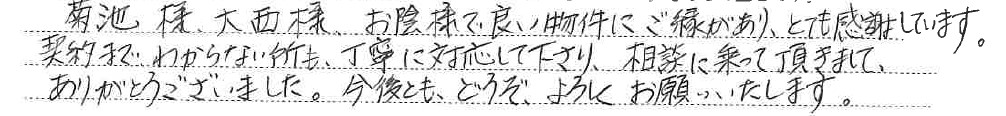 菊池様、大西様、お陰様で良い物件にご縁があり、とても感謝しています。
契約までわからない所も、丁寧に対応して下さり、相談に乗って頂きまして、
ありがとうございました。今後とも、どうぞ、よろしくお願いいたします。